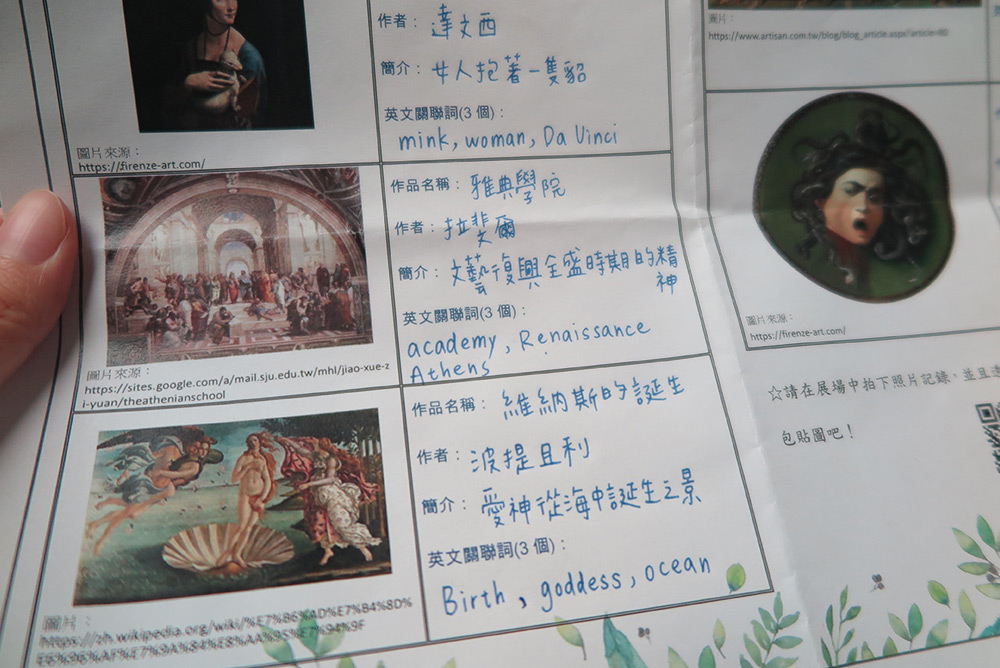 作者：達文西
簡介：女人抱著一隻貂
英文關聯詞(3 個)：
mink, woman, Da Vinci
圖片來源：
https://firenze-art.com/
作品名稱：雅典學院
作者：拉斐爾
簡介：文藝復興全盛時期的精
神
英文關聯詞(3 個)：
academy, Renaissance
Athens
圖片來源：
https://sites.google.com/a/mail.sju.edu.tw/mhl/jiao-xue-z
i-yuan/theathenianschool
作品名稱：維納斯的誕生
作者：波提且利
簡介：愛神從海中誕生之景
英文關聯詞(3 個)：
Birth, goddess, ocean
圖片：
https://zh.wikipedia.org/wiki/%E7%B6%AD%E7%B4%8D%
E6%96%AF%E7%9A%84%E8%AA%95%E7%94%9F
圖片：
https://www.artisan.com.tw/blog/blog_article.aspx?article=80
圖片來源：
https://firenze-art.com/
☆請在展場中拍下照片記錄，並且
包貼圖吧！